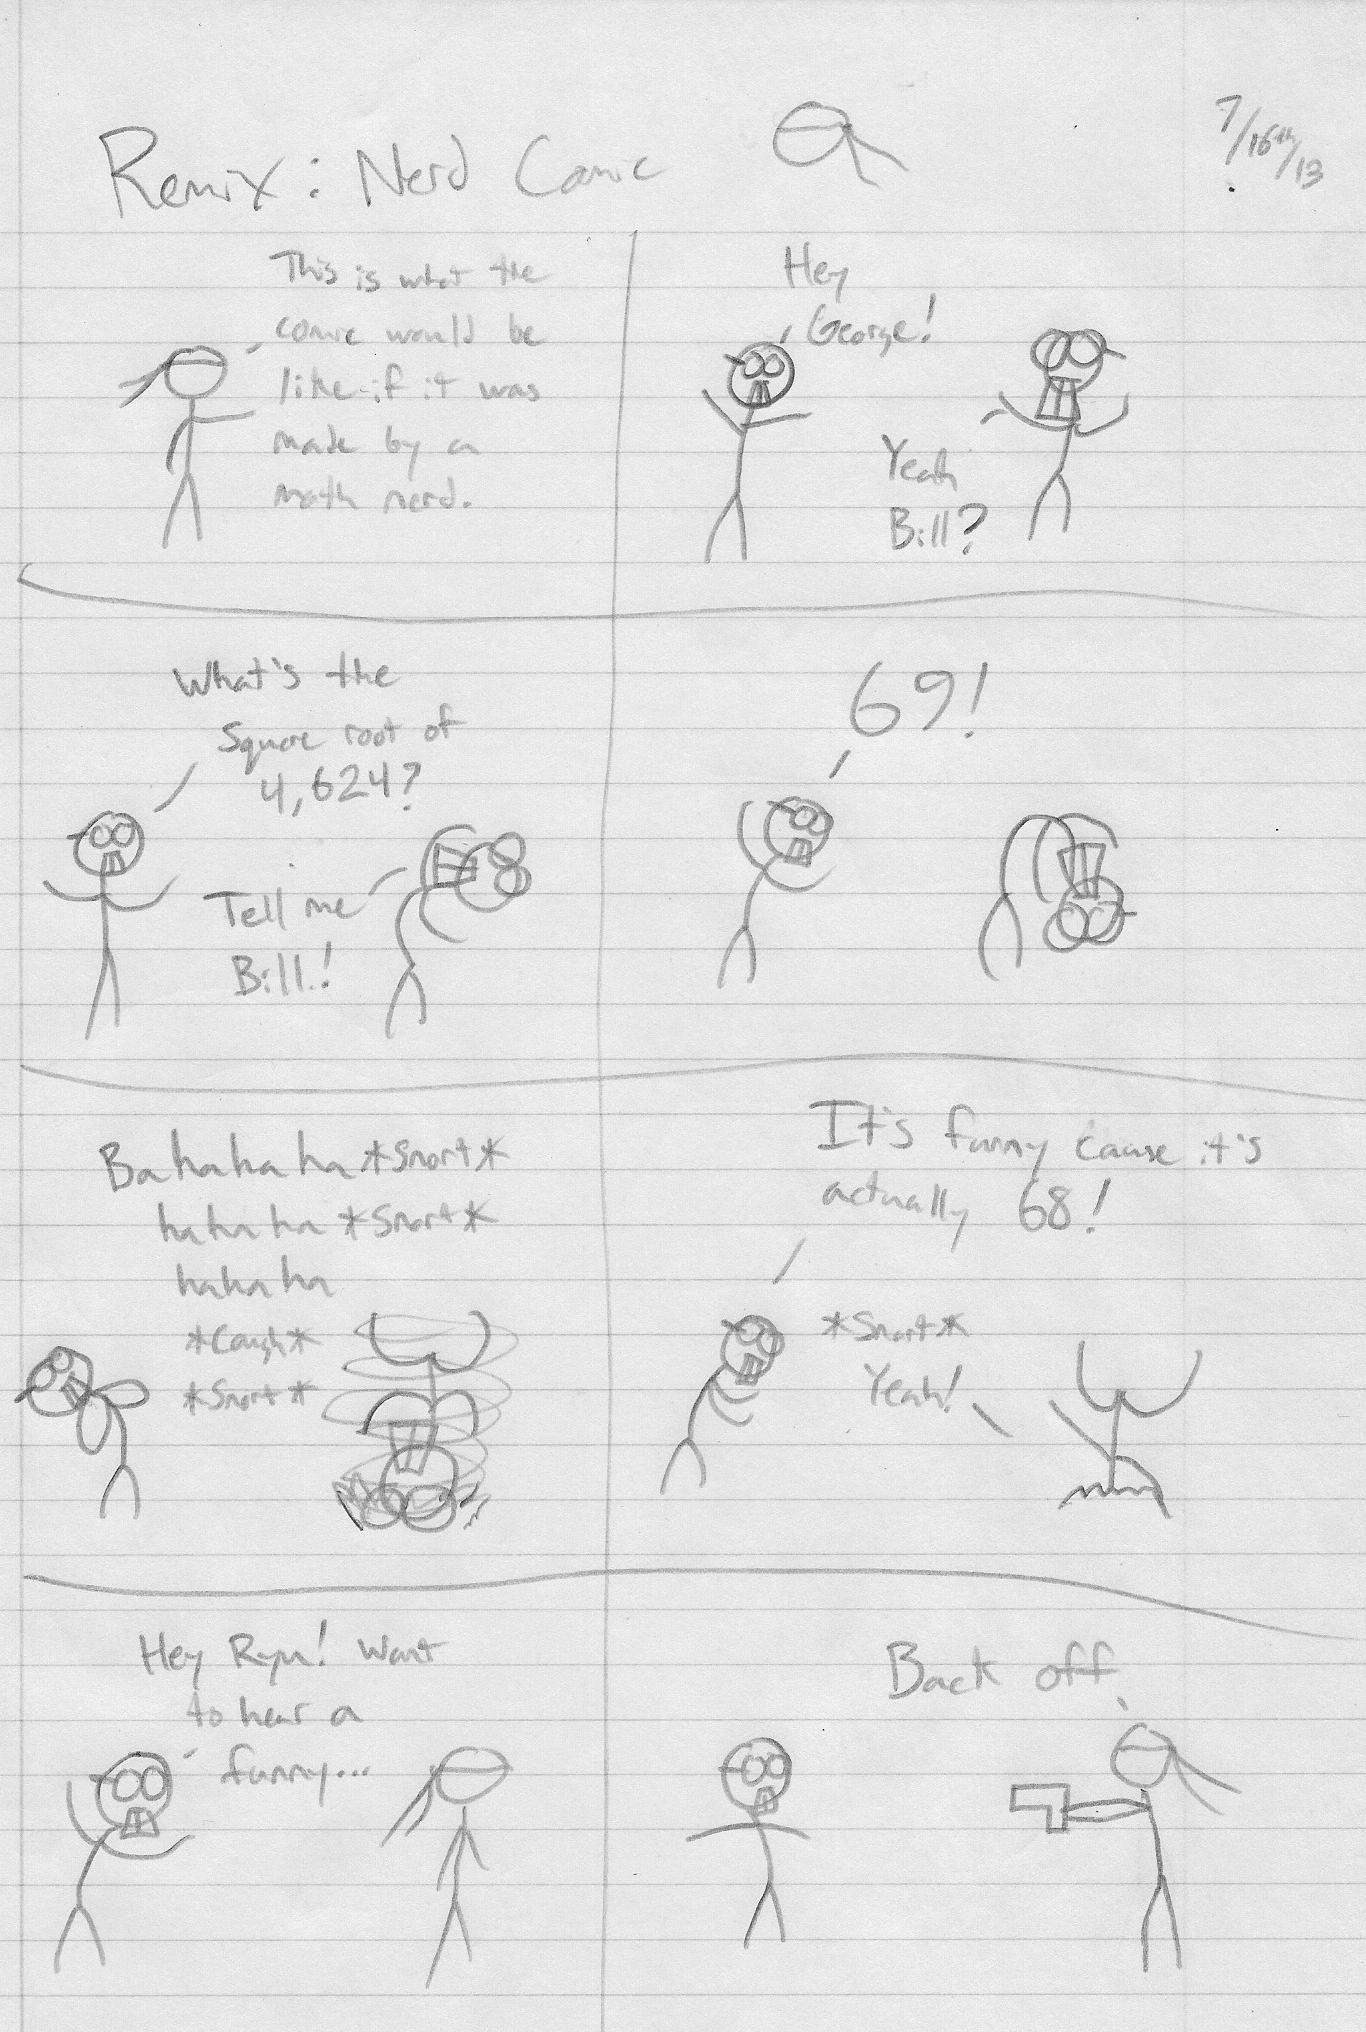 Remix: Nerd Comic
7/16th/13
This is what the
comic would be
like if it was
made by a
math nerd.
Hey
George!
Yeah
Bill?
What's the
square root of
4,624?
Tell me
Bill!
69!
Bahahaha *snort*
hahaha *snort*
hahaha
*Cough*
*Snort*
It's funny cause it's
actually 68!
*Snort*
Yeah!
Hey Ryu! Want
to hear a
funny...
Back off.